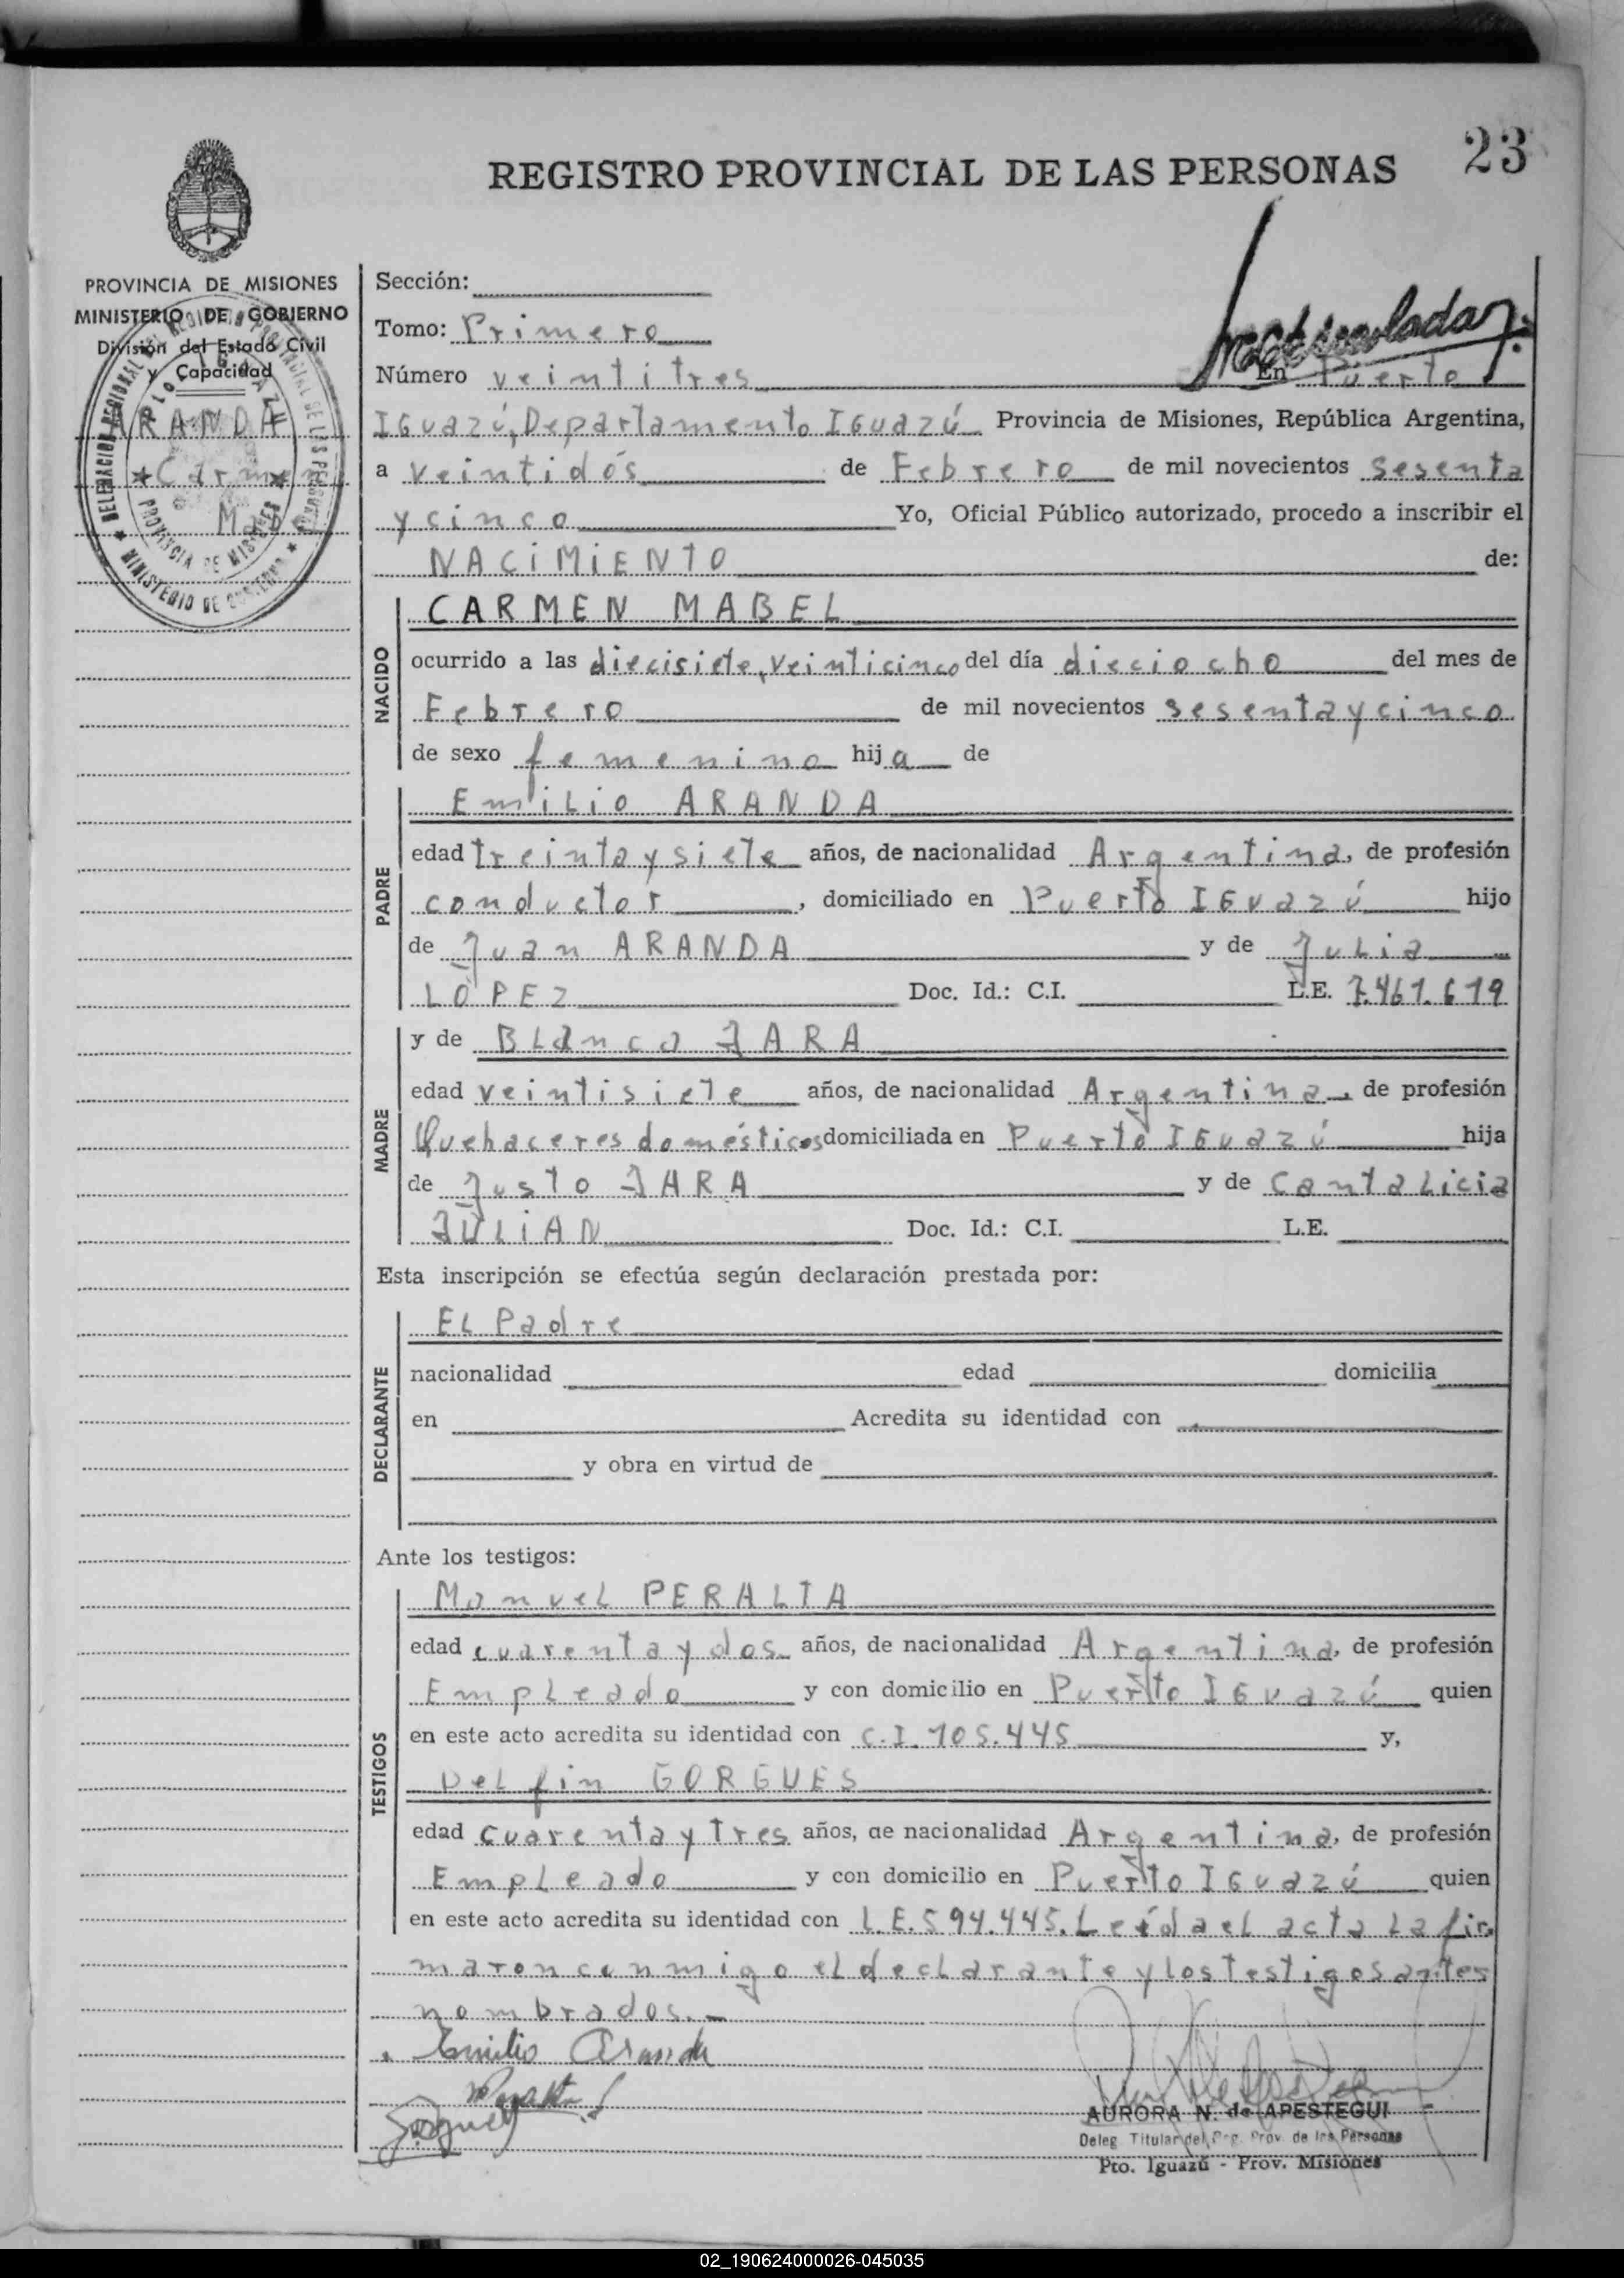 23
REGISTRO PROVINCIAL DE LAS PERSONAS
PROVINCIA DE MISIONES
MINISTERIO DE GOBIERNO
División del Estado Civil
y Capacidad
ARANDA
Carmen
Mabel
Sección:
Tomo: Primero
Número veintitres En Puerto
Iguazú, Departamento Iguazú Provincia de Misiones, República Argentina,
a veintidós de Febrero de mil novecientos sesenta
y cinco Yo, Oficial Público autorizado, procedo a inscribir el
NACIMIENTO de:
NACIDO
CARMEN MABEL
ocurrido a las diecisiete, veinticinco del día dieciocho del mes de
Febrero de mil novecientos sesenta y cinco
de sexo femenino hija de
PADRE
Emilio ARANDA
edad treinta y siete años, de nacionalidad Argentina, de profesión
conductor, domiciliado en Puerto Iguazú hijo
de Juan ARANDA y de Julia
LOPEZ Doc. Id.: C.I. L.E. 7.461.619
MADRE
y de Blanca JARA
edad veintisiete años, de nacionalidad Argentina, de profesión
Quehaceres domésticos domiciliada en Puerto Iguazú hija
de Justo JARA y de Cantalicia
JULIAN Doc. Id.: C.I. L.E.
Esta inscripción se efectúa según declaración prestada por:
DECLARANTE
El Padre
nacionalidad edad domicilia
en Acredita su identidad con
y obra en virtud de
Ante los testigos:
TESTIGOS
Manuel PERALTA
edad cuarenta y dos años, de nacionalidad Argentina, de profesión
Empleado y con domicilio en Puerto Iguazú quien
en este acto acredita su identidad con C.I. 105.445 y,
Delfin GORGUES
edad cuarenta y tres años, de nacionalidad Argentina, de profesión
Empleado y con domicilio en Puerto Iguazú quien
en este acto acredita su identidad con L.E. 594.445. Leída el acta la fir.
maron conmigo el declarante y los testigos antes
nombrados.-
Emilio Aranda
AURORA N. de APESTEGUI
Deleg. Titular del Reg. Prov. de las Personas
Pto. Iguazú - Prov. Misiones
02_190624000026-045035